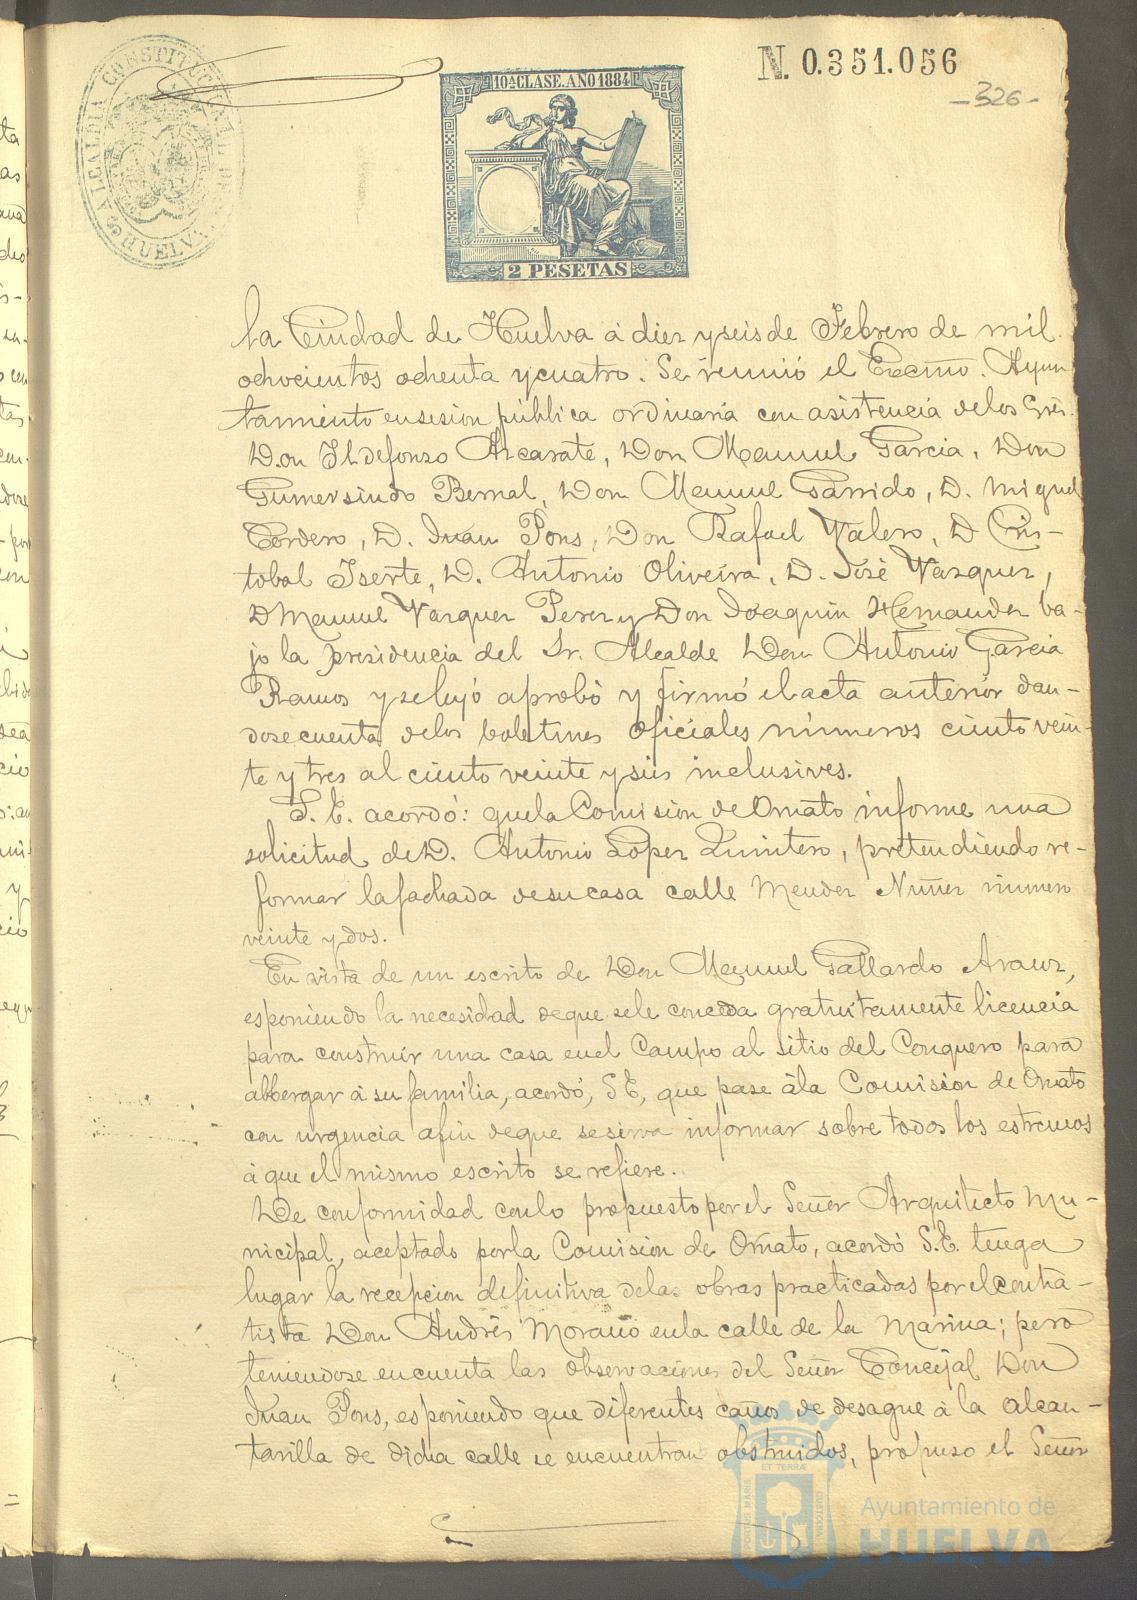 ALCALDIA CONSTITUCIONAL DE HUELVA
10ª CLASE. AÑO 1884
2 PESETAS
N. 0.351.056
-326-
la Ciudad de Huelva á diez y seis de Febrero de mil
ochocientos ochenta y cuatro. Se reunió el Excmo. Ayun
tamiento en sesion pública ordinaria con asistencia de los Sres.
Don Ildefonso Alcarate, Don Manuel Garcia, Don
Gumersindo Bernal, Don Manuel Garrido, D. Miguel
Cordero, D. Juan Pons, Don Rafael Valero, D Cris-
tobal Iserte, D. Antonio Oliveira, D. José Vazquez,
D Manuel Vazquez Perez y Don Joaquin Hernandez ba-
jo la presidencia del Sr. Alcalde Don Antonio Garcia
Ramos y se leyó aprobó y firmó el acta anterior dan-
dose cuenta de los boletines oficiales números ciento vein-
te y tres al ciento veinte y seis inclusives.
S. E. acordó: que la Comision de Ornato informe una
solicitud de D. Antonio Lopez Quintero, pretendiendo re-
formar la fachada de su casa calle Mendez Nuñez número
veinte y dos.
En vista de un escrito de Don Manuel Gallardo Arauz,
esponiendo la necesidad de que se le conceda gratuitamente licencia
para construir una casa en el Campo al sitio del Conquero para
albergar á su familia, acordó, S E, que pase á la Comision de Ornato
con urgencia á fin de que se sirva informar sobre todos los estremos
á que el mismo escrito se refiere.
De conformidad con lo propuesto por el Señor Arquitecto Mu-
nicipal, aceptado por la Comision de Ornato, acordó S.E. tenga
lugar la recepcion definitiva de las obras practicadas por el contra-
tista Don Andrés Moraño en la calle de la Marina; pero
teniendose en cuenta las observaciones del Señor Concejal Don
Juan Pons, esponiendo que diferentes caños de desague á la alcan-
tarilla de dicha calle se encuentran obstruidos, propuso el Señor
Ayuntamiento de
HUELVA